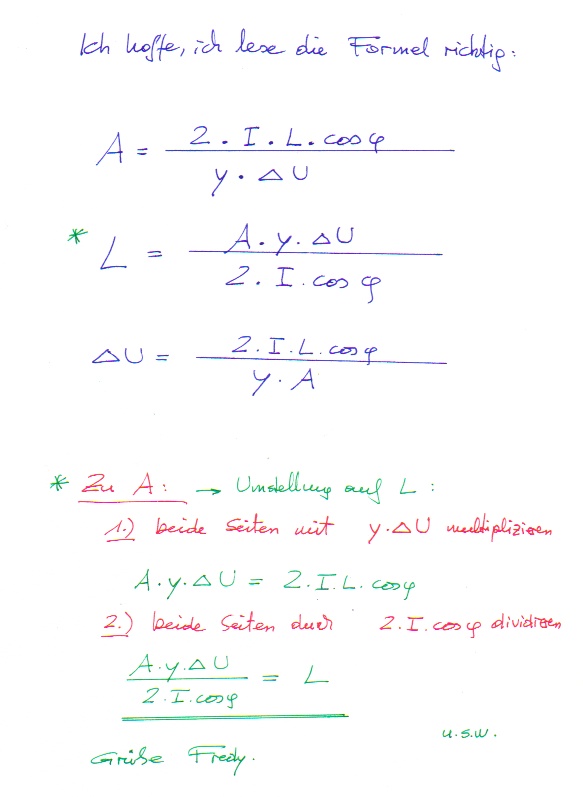 Ich hoffe, ich lese die Formel richtig:
A = 2 · I · L · cos φ / y · △U
* L = A · y · △U / 2 · I · cos φ
△U = 2 · I · L · cos φ / y · A
* Zu A: → Umstellung auf L :
1.) beide Seiten mit y · △U multiplizieren
A · y · △U = 2 · I · L · cos φ
2.) beide Seiten durch 2 · I · cos φ dividieren
A · y · △U / 2 · I · cos φ = L
u.s.w.
Grüße Fredy.